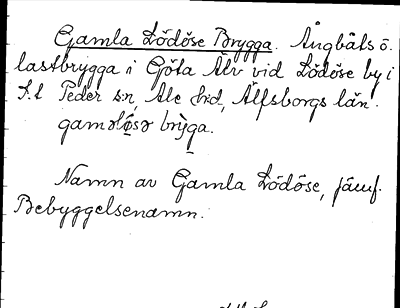 Gamla Lödöse Brygga. Ångbåts ō.
lastbrygga i Göta Älv vid Lödöse by i
S:t Peder s:n, Ale hd, Älfsborgs län.
gaməlø̀sə brỳga.
Namn av Gamla Lödöse, jämf.
Bebyggelsenamn.